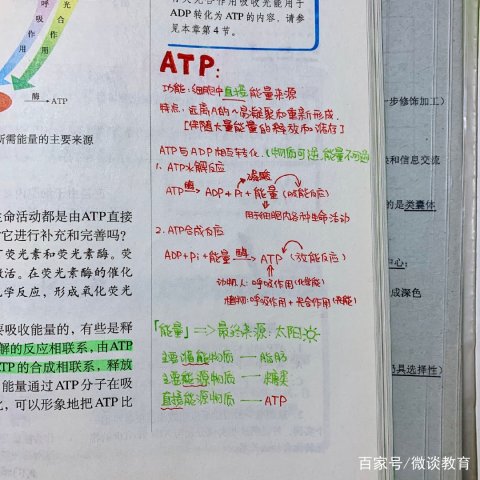 呼
吸
作
用
光
合
作
用
酶
→ATP
ADP 转化为 ATP 的内容，请参
见本章第 4 节。
所需能量的主要来源
生命活动都是由ATP直接
它进行补充和完善吗？
荧光素和荧光素酶。荧
激活。在荧光素酶的催化
化学反应，形成氧化荧光
要吸收能量的，有些是释
解的反应相联系，由ATP
ATP的合成相联系，释放
能量通过ATP分子在吸
，可以形象地把ATP比
ATP:
功能:细胞中直接能量来源
特点:远离A的~易断裂和重新形成.
[伴随大量能量的释放和储存]
ATP与ADP相互转化.(物质可逆,能量不可逆)
1. ATP水解反应
ATP 酶→ ADP+Pi+能量 (吸能反应)
用于细胞内各种生命活动
2. ATP合成反应
ADP+Pi+能量 酶→ ATP (放能反应)
动物,人:呼吸作用(化学能)
植物:呼吸作用+光合作用(光能)
「能量」=>最终来源:太阳
主要储能物质 — 脂肪
主要能源物质 — 糖类
直接能源物质 — ATP
步修饰加工)
和信息交流
的是类囊体
中心;
成深色
具选择性)
百家号/微谈教育